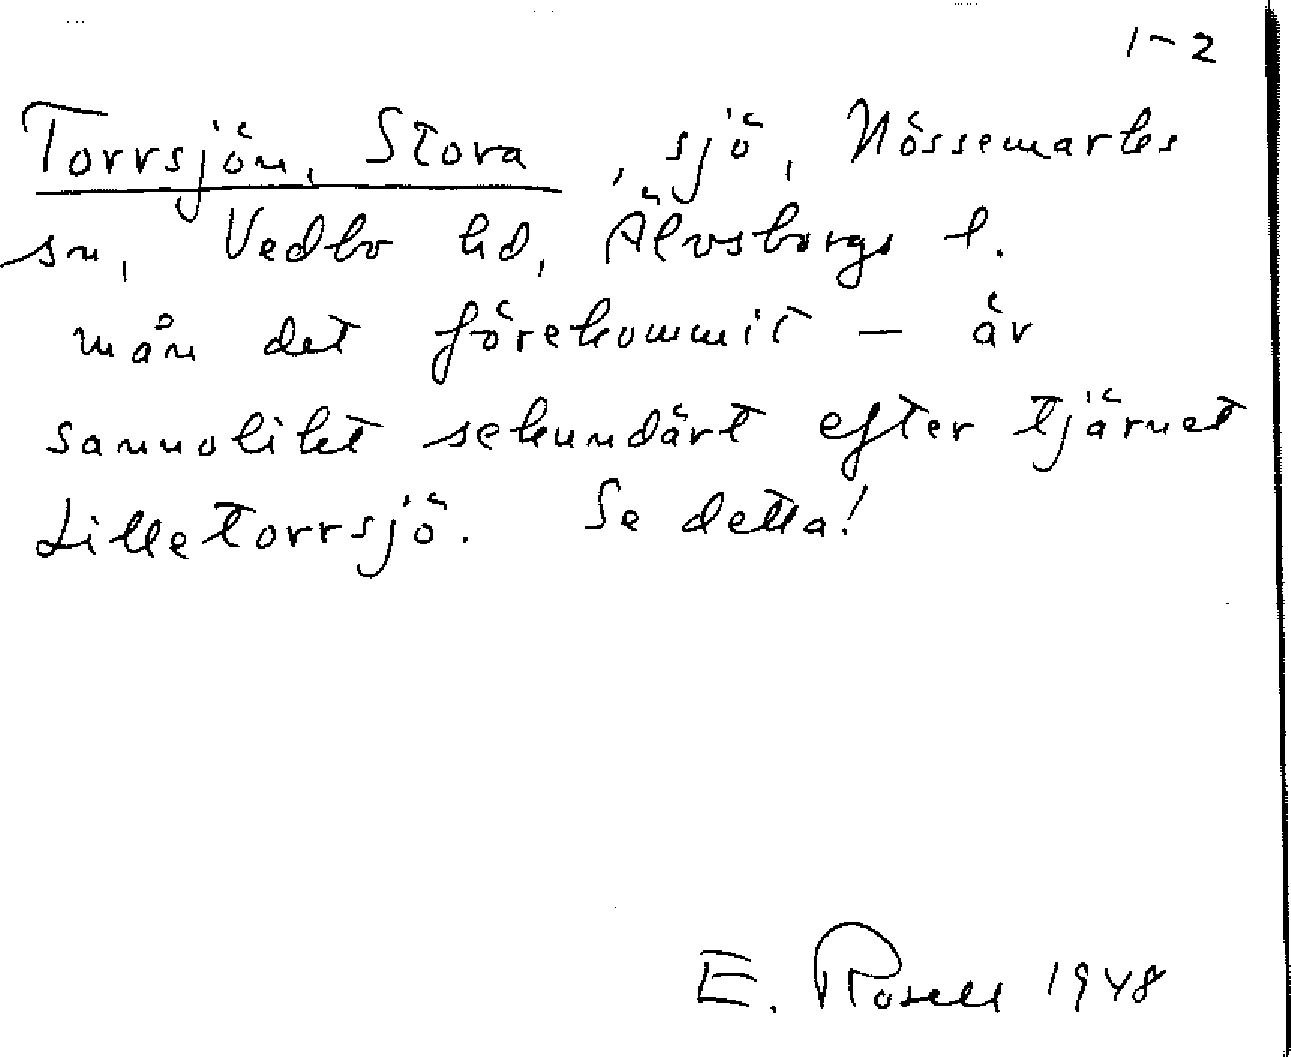 1-2
Torrsjön, Stora, sjö, Nössemarks
sn, Vedbo hd, Älvsborgs l.
mån det förekommit — är
sannolikt sekundärt efter tjärnet
Lilletorrsjö. Se detta!
E. Rosell 1948